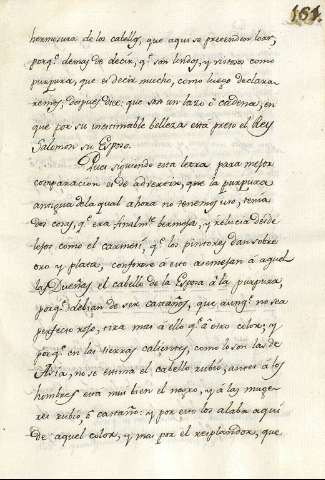 161.
hermosura de los cabellos, que aqui se pretenden loar,
porq.e demas de decir, q.e son lindos, y rojos como
purpura, que es decir mucho, como luego declara
remos; despues dice que son un lazo ò cadena, en
que por su inestimable belleza está preso el Rey
Salomon su Esposo.
Pues siguiendo esta letra para mejor
comparacion es de advertir, que la purpura
antigua de la qual ahora no tenemos uso, tenia
dos cosas, q.e era finalm.te bermeja, y relucia desde
lejos como el carmesi, q.e los pintores dan sobre
oro y plata, conforme a esto asemejan à aquel
las Dueñas el cabello de la Esposa à la purpura,
porq.e debian de ser castaños, que aunq.e no sea
perfecto rojo, tira mas à ello q.e à otro color; y
porq.e en las tierras calientes, como lo son las de
Asia, no se estima el cabello rubio, antes à los
hombres esta mui bien el negro, y à las muge-
res rubio, ò castaño: y por esto los alaba aqui
de aquel color, y mas por el resplandor, que